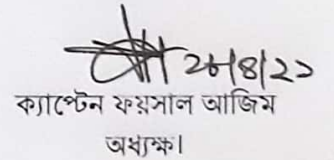 ২৮|৪|২১
ক্যাপ্টেন ফয়সাল আজিম
অধ্যক্ষ।